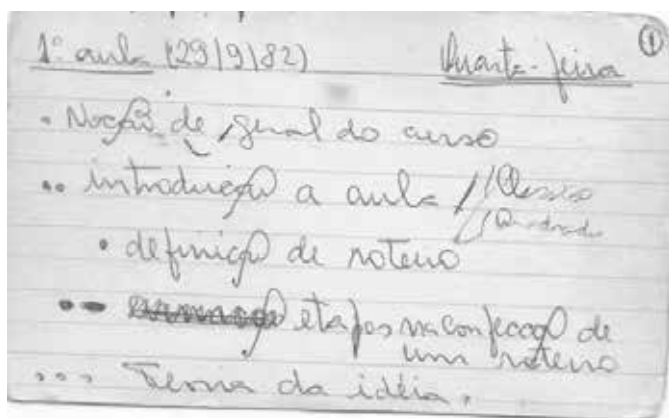 1ª aula (29/9/82) Quarta-feira ①
• Noção de, geral do curso
•• introdução a aula / Clássico
Quadrado
• definição de roteiro
•• etapas na confecção de
um roteiro
••• Teoria da idéia.